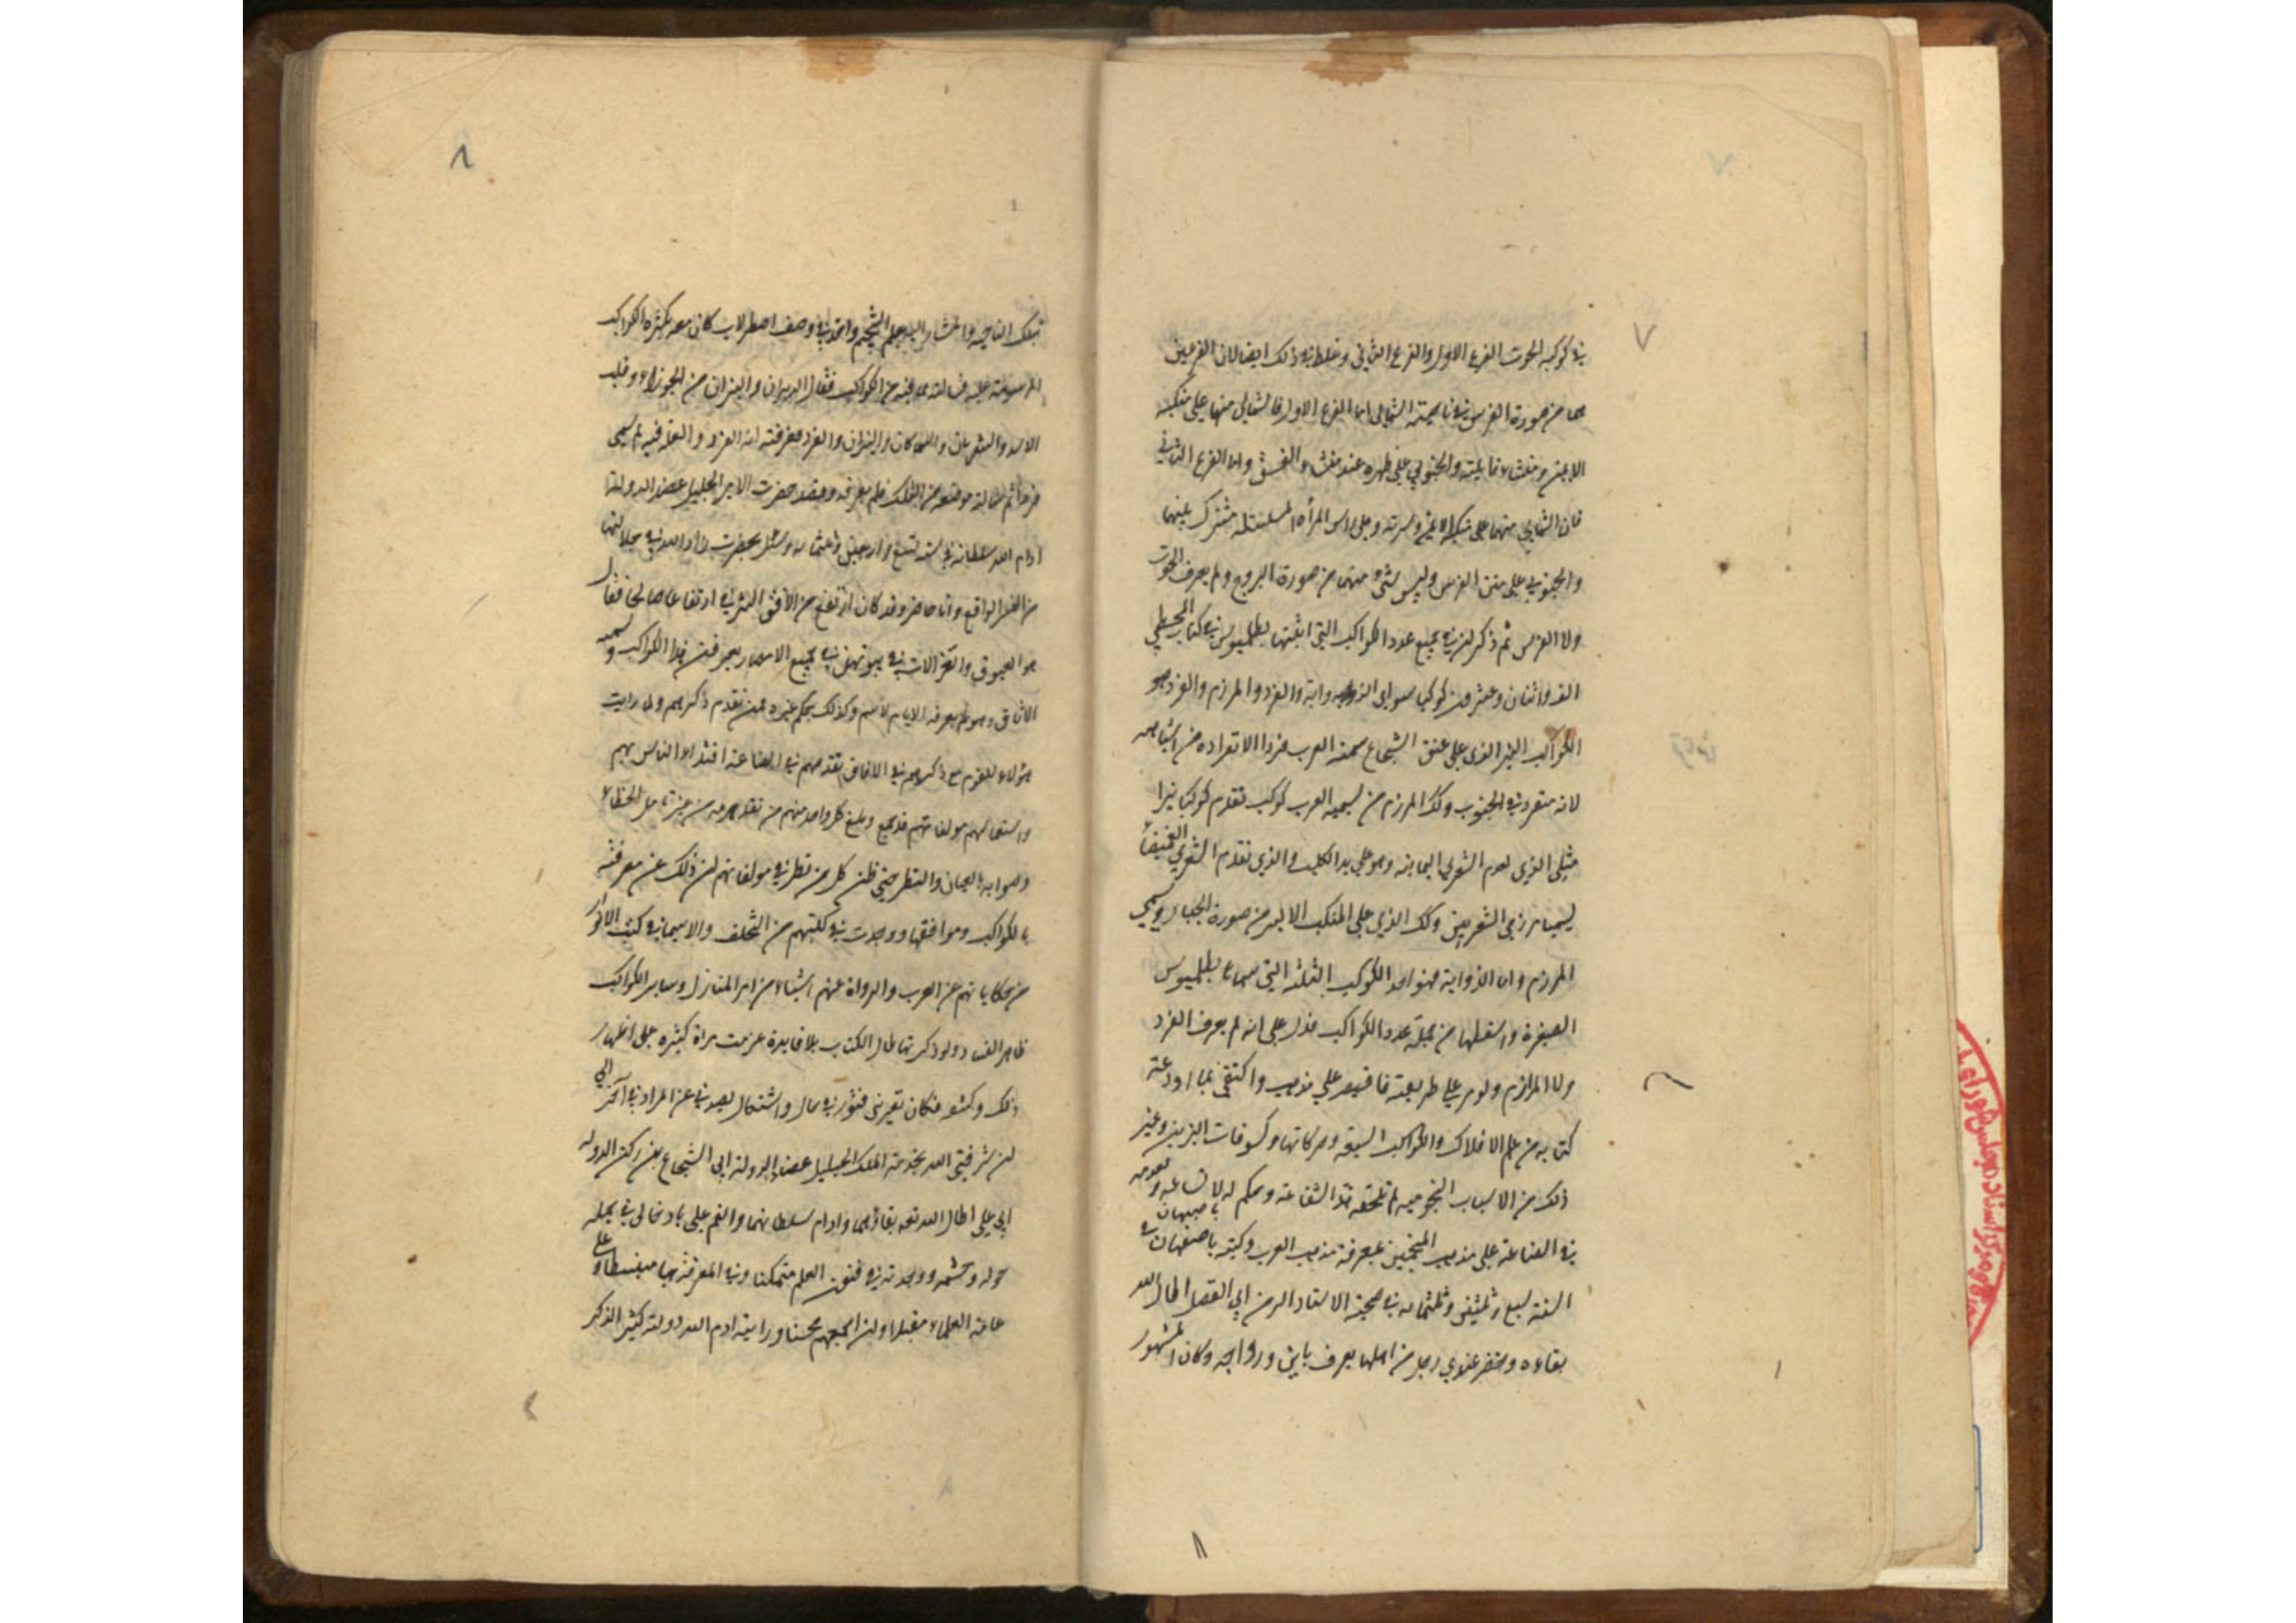 ٧
في كوكبه الحوت الفرع الاول والفرع الثاني وغلط في ذلك ايضا لان الفرعين
هما من صورة الفرس في ناحية الشمالي اما الفرع الاول فالشمالي منها على منكبه
الايمن ومنشاء والجنوبي على ظهره عند منشاء العنق واما الفرع الثاني
فان الشمالي منهما على وسرته وعلى راس المرأة المسلسله مشترك بينهما
والجنوبي على متن الفرس وليس شئ منهما من صورة البروج ولم يعرف الحوت
ولا الفرس ثم ذكر ان في جميع عدد الكواكب التي اثبتها بطلميوس في كتاب المجسطي
الف واثنان وعشرون كوكبا سوى الذوابة والفرد والمرزم والفرد هو
الكواكب النير الذي على عنق الشجاع سمته العرب فردا لانفراده من اشباهه
لانه منفرد في الجنوب وكك المرزم من يسميه العرب كوكب تقدم كوكبا نيرا
مثلي الذي تقدم الشعرى اليمانيه وهو على يد الكلب والذي تقدم الشعرى الغميضا
يسميا مرزمي الشعريين وكك الذي على المنكب الايسر من صورة الجبار ويسمى
المرزم واما الذوابة فهو احد الكواكب الثلثه التي سماها بطلميوس
الضفيرة واسقطها من جملة عدد الكواكب فدل على انه لم يعرف الفرد
ولا المرازم ولو على طريقته فاقتصر على مذهب واكتفى بما اودعته
كتابه من علم الافلاك والكواكب السبعة وحركاتها وكسوفات النيرين وغير
ذلك من الاسباب النجوميه لم تلحقه هذه الشناعة وحكم له
في الصناعة على مذهب المنجمين بمعرفة مذهب العرب وكنت باصفهان في
السنة سبع وثلثين وثلثمايه في صحبة الاستاد الرئيس ابي الفضل اطال الله
بقاءه وحضر عندي رجل من اهلها يعرف بابن رواحه وكان المشهور
٨
٨
بتلك الناحيه والمشار اليه بعلم التنجيم واخذ في وصف اصطرلاب كان معه بكثرة الكواكب
المرسومة عليه فسالته عما فيه من الكواكب فقال الدبران والنيران من الجوزاء وقلب
الاسد والشعريان والسماكان والنسران والفرد فعرفته انه الفرد والعلة فيه لم سمي
فردا ثم سالته موقعه من الفلك فلم يعرفه وقصد حضرت الامير الجليل عضد الدوله
ادام الله سلطانه في سنة تسع واربعين وثلثمايه وسئل بحضرت زاد الله في جلالتها
من النسر الواقع وانا حاضر وقد كان ارتفع من الافق الشرقي ارتفاعا صالحا فقال
هو العيوق والغزالات في بيوتهن في جميع الامصار يعرفن هذا الكواكب وتسميه
الاثافي وهو لم يعرفه الا بالاسم وكذلك بحكم غيره ممن تقدم ذكرهم ولما رايت
هؤلاء القوم مع ذكرهم في الافاق تقدمهم في الصناعة اقتداء الناس بهم
واستعمالهم مولفاتهم قد تبع كل واحد منهم من تقدمه من غير تامل الخطاء
وصوابه بالعيان والنظر حتى ظن كل من نظر في مولفاتهم ان ذلك عن معرفة
بالكواكب ومواقعها ووجدت في كتبهم من التخلف ولاسيما في كتب الانوا
من حكاياتهم عن العرب والرواة عنهم اشياء من امر المنازل وساير الكواكب
ظاهر الفساد ولو ذكرتها لطال الكتاب بلا فايدة عزمت مراة كثيرة على اظهار
ذلك وكشفه فكان يعتريني فتور في حال واشتغال يصدني عن المراد في آخر الى
ان شرفني الله بخدمة الملك الجليل عضد الدولة ابي الشجاع بن ركن الدوله
ابي علي اطال الله بقاؤهما وادام سلطانهما وانعم علي بادخالي في جمله
خوله وحشمه ووجدته في فنون العلم متمكنا وفي المعرفة بها منبسطا وعلى
عامة العلماء مقبلا ولجميعهم محسنا ورايته ادام الله دولته كثير الذكر